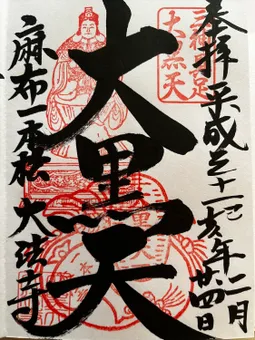 奉拝 平成三十一己亥年
二月廿四日
三神具足
大黒天
大黒天
麻布一本松 大法寺